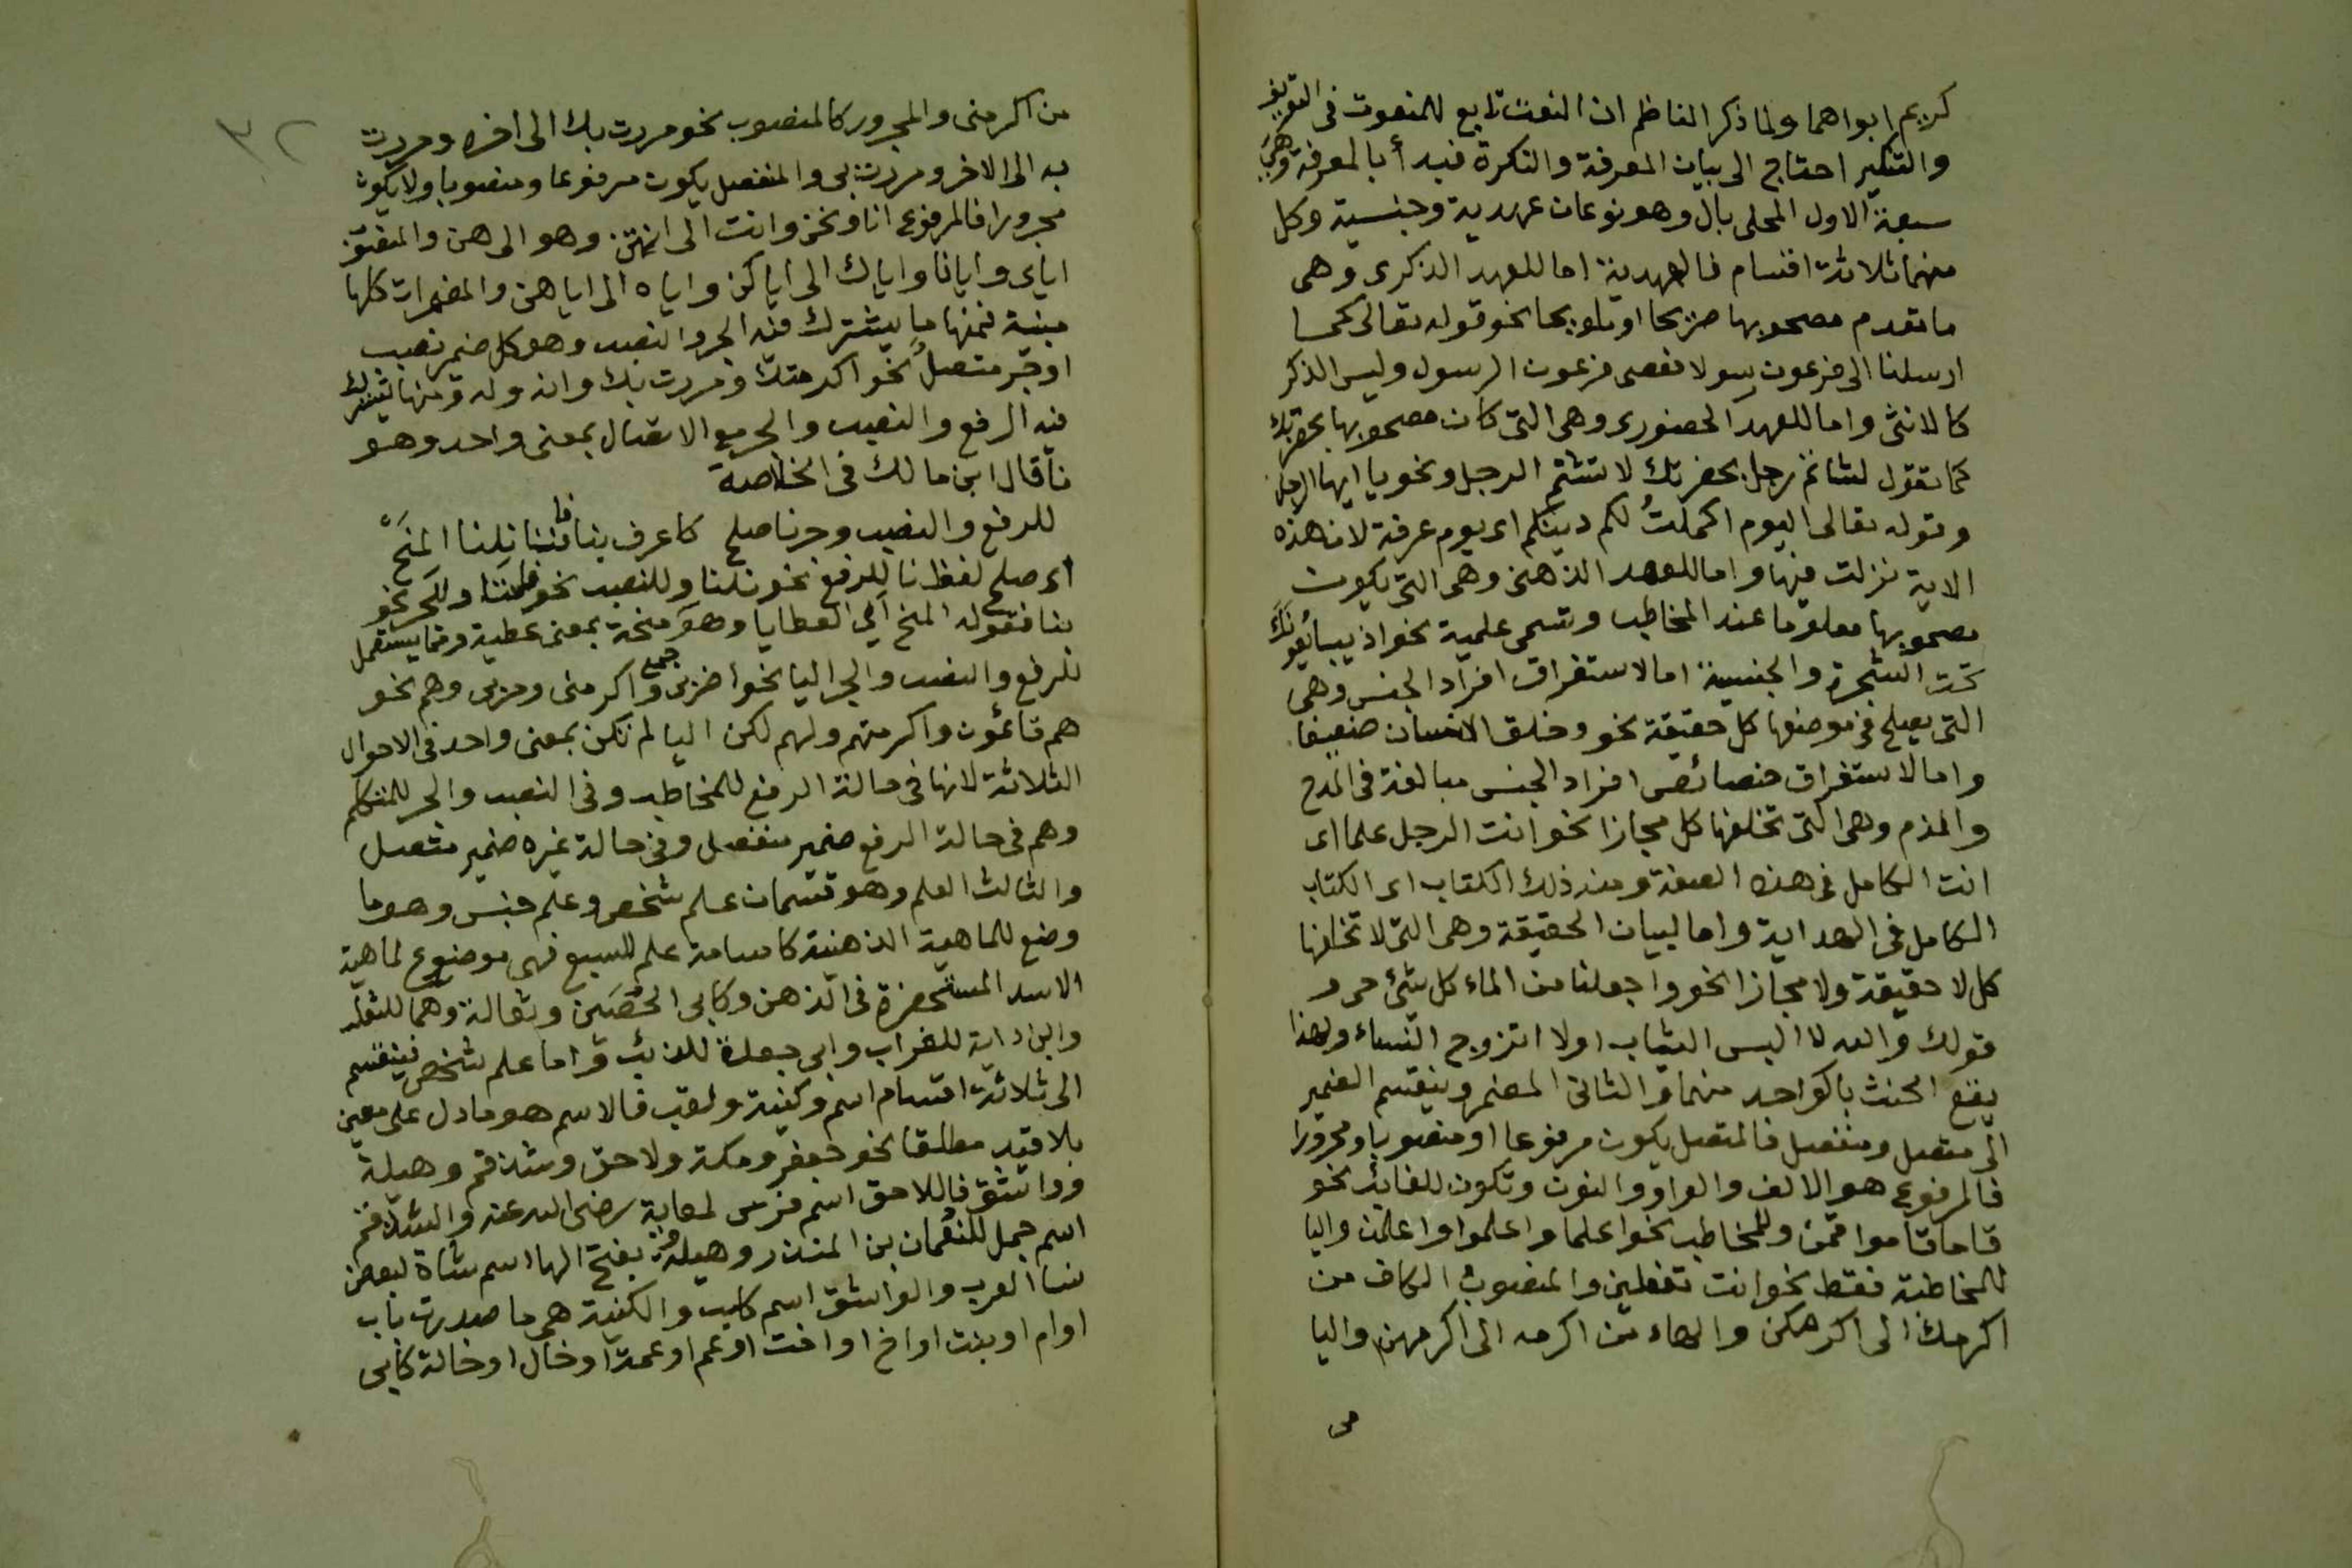 كريم ابواهما ولما ذكر الناظم ان النعت تابع للمنعوت فى التعريف
والتنكير احتاج الى بيان المعرفة والنكرة فبدأ بالمعرفة وهى
سبعة الاول المحلى بال وهو نوعان عهدية وجنسية وكل
منهما ثلاثة اقسام فالعهدية اما للعهد الذكرى وهى
ما تقدم مصحوبها صريحا او تلويحا نحو قوله تعالى كما
ارسلنا الى فرعون رسولا فعصى فرعون الرسول وليس الذكر
كالانثى واما للعهد الحضورى وهى التى كان مصحوبها بحضرتك
كما تقول لشاتم رجل بحضرتك لا تشتم الرجل ونحو يا ايها الرجل
وقوله تعالى اليوم اكملتُ لكم دينكم اى يوم عرفة لان هذه
الاية نزلت فيها واما للعهد الذهنى وهى التى يكون
مصحوبها معلوما عند المخاطب وتسمى علمية نحو اذ يبايعونك
تحت الشجرة والجنسية اما لاستغراق افراد الجنس وهى
التى يصلح فى موضعها كل حقيقة نحو وخلق الانسان ضعيفا
واما لاستغراق خصائص افراد الجنس مبالغة فى المدح
والذم وهى التى تخلفها كل مجازا نحو انت الرجل علما اى
انت الكامل فى هذه الصفة ومنه ذلك الكتاب اى الكتاب
الكامل فى الهداية واما لبيان الحقيقة وهى التى لا تخلفها
كل لا حقيقة ولا مجازا نحو وجعلنا من الماء كل شئ حى و
قولك والله لا البس الثياب او لا اتزوج النساء ولهذا
يقع الحنث بالواحد منهما والثانى المضمر وينقسم الضمير
الى متصل ومنفصل فالمتصل يكون مرفوعا او منصوبا ومجرورا
فالمرفوع هو الالف والواو والنون وتكون للغائب نحو
قاما قاموا قمن وللمخاطب نحو اعلما واعلموا واعلمن واليا
للمخاطبة فقط نحو انت تفعلين والمنصوب الكاف من
اكرمك الى اكرمكن والهاء من اكرمه الى اكرمهن واليا
من
٣٢
من اكرمنى والمجرور كالمنصوب نحو مررت بك الى اخره ومررت
به الى الاخر ومررت بى والمنفصل يكون مرفوعا ومنصوبا ولا يكون
مجرورا فالمرفوع انا ونحن وانت الى انتن وهو الى هن والمنصوب
اياى وايانا واياك الى اياكن واياه الى اياهن والمضمرات كلها
مبنية فمنها ما يشترك فيه الجر والنصب وهو كل ضمير نصب
او جر متصل نحو اكرمتك ومررت بك وانه وله ومنها يشترك
فيه الرفع والنصب والجر مع الاتصال بمعنى واحد وهو
نا قال ابن مالك فى الخلاصة
للرفع والنصب وجر نا صلح كاعرف بنا فاننا نلنا المنح
اى صلح لفظ نا للرفع نحو نلنا وللنصب نحو فاننا وللجر نحو
بنا فقوله المنح اى العطايا وهو جمع منحة بمعنى عطية ومما يستعمل
للرفع والنصب والجر اليا نحو اضربى واكرمنى ومر بى وهم نحو
هم قائمون واكرمتهم ولهم لكن اليا لم تكن بمعنى واحد فى الاحوال
الثلاثة لانها فى حالة الرفع للمخاطب وفى النصب والجر للمتكلم
وهم فى حالة الرفع ضمير منفصل وفى حالة غيره ضمير متصل
والثالث العلم وهو قسمان علم شخص وعلم جنس وهو ما
وضع للماهية الذهنية كاسامة علم للسبع فهى موضوع لماهية
الاسد المستحضرة فى الذهن وكابى الحُصَين وثعالة وهما للثعلب
وابن داية للغراب وابى جعدة للذئب واما علم شخص فينقسم
الى ثلاثة اقسام اسم وكنية ولقب فالاسم هو ما دل على معين
بلا قيد مطلقا نحو جعفر ومكة ولاحق وشذقم وهيلة
وواشق فاللاحق اسم فرس لمعاوية رضى الله عنه والشذقم
اسم جمل للنعمان بن المنذر وهيلة بفتح الها اسم شاة لبعض
نسا العرب والواشق اسم كلب والكنية هى ما صدرت باب
او ام او بنت او اخ او اخت او عم او عمة او خال او خالة كابى